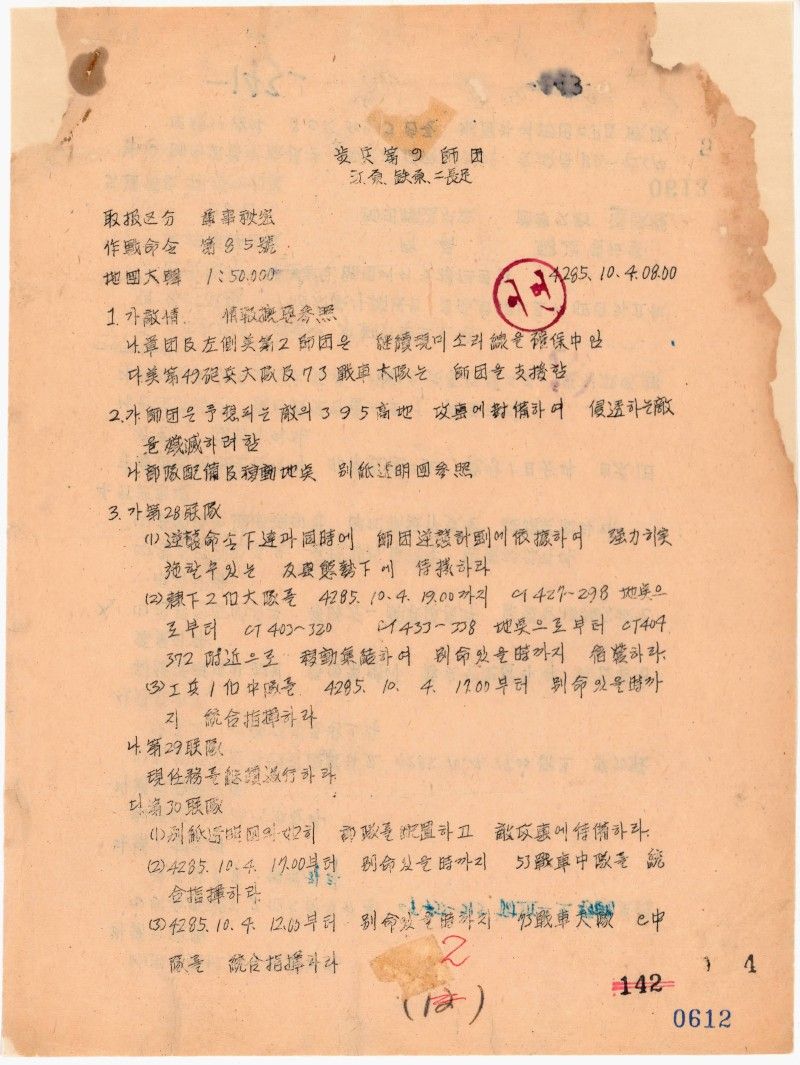 步兵第9師団
江原 鉄原 二長足
取扱区分 軍事秘密
作戰命令 第85號
地図大韓 1:50.000 4285.10.4.08.00
이면
1.가敵情 情報槪要參照
나.軍団及左側美第2師団은 継續現미소리線을 確保中임
다美第49砲兵大隊及73戰車大隊는 師団을 支援함
2.가師団은予想되는敵의395高地 攻擊에對備하여 侵透하는敵
을殲滅하려함
나部隊配備及移動地点 別紙透明図參照
3.가第28联隊
(1)逆襲命令下達과同時에 師団逆襲計劃에依據하여 强力히実
施할수있는 態勢下에 待機하라
(2)隷下2個大隊를 4285.10.4.19.00까지 CT427~298地点으
로부터 CT403~320 CT433~338地点으로부터CT404
372附近으로 移動集結하여 別命있을時까지 하라.
(3)工兵1個中隊를 4285.10.4.17.00부터 別命있을時까
지 統合指揮하라
나.第29联隊
現任務를継續遂行하라
다.第30联隊
(1)別紙透明図와如히 部隊를配置하고 敵攻擊에待備하라.
(2)4285.10.4.17.00부터 別命있을時까지 53戰車中隊를 統
合指揮하라
(3)4285.10.4.12.05부터 別命있을時까지 73戰車大隊 C中
隊를 統合指揮하라
2
(12)
142
4
0612